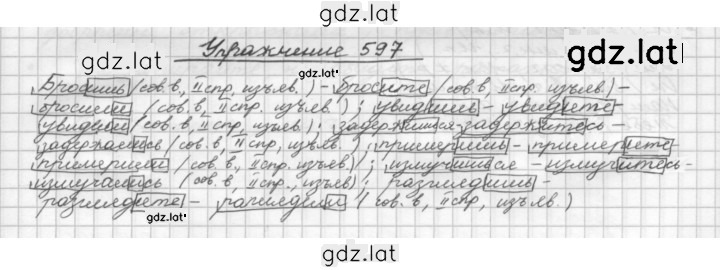 gdz.lat
Упражнение 597
gdz.lat
Бросишь (сов.в, II спр, изъяв.) – бросите (сов.в, II спр, изъяв.) –
бросили (сов.в, II спр, изъяв.); увидишь – увидите –
увидели (сов.в, II спр, изъяв.); задержишься – задержитесь –
задержались (сов.в, II спр, изъяв.); примеришь – примерите –
примерили (сов.в, II спр, изъяв); измучишься – измучитесь –
измучились (сов.в, II спр., изъяв); разглядишь –
gdz.lat
разглядите – разглядели (сов.в, II спр, изъяв.)
gdz.lat